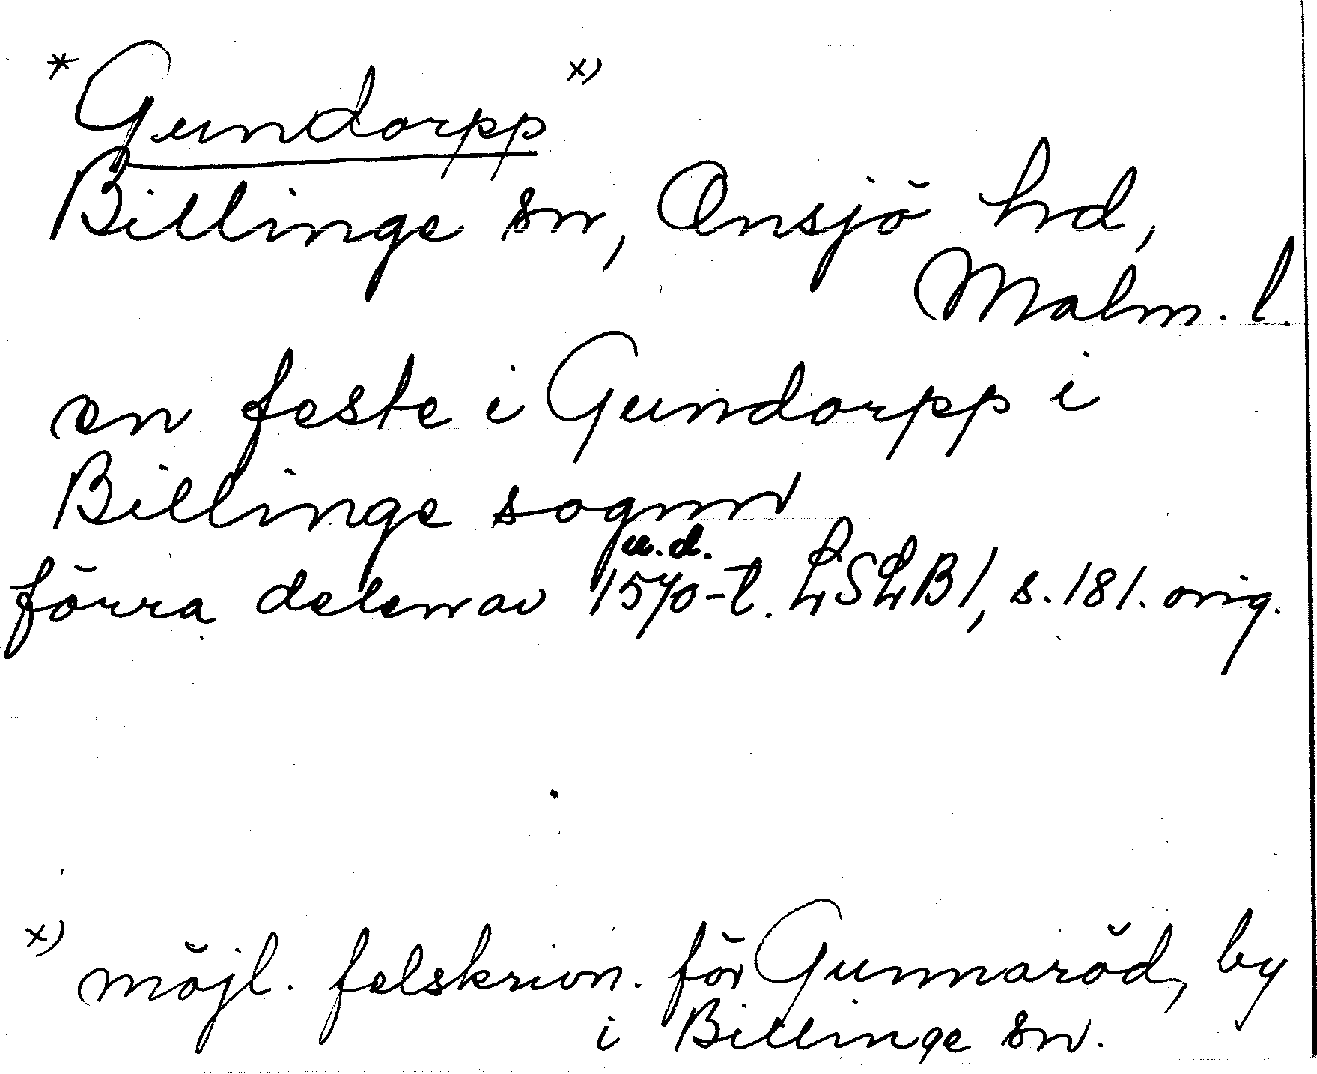 *Gundorpp x)
Billinge sn, Onsjö hd,
Malm. l.
en feste i Gundorpp i
Billinge sognn
u.d.
förra delen av 1570-t. LSLB1, s. 181. orig.
x) möjl. felskrivn. för Gunnaröd, by
i Billinge sn.